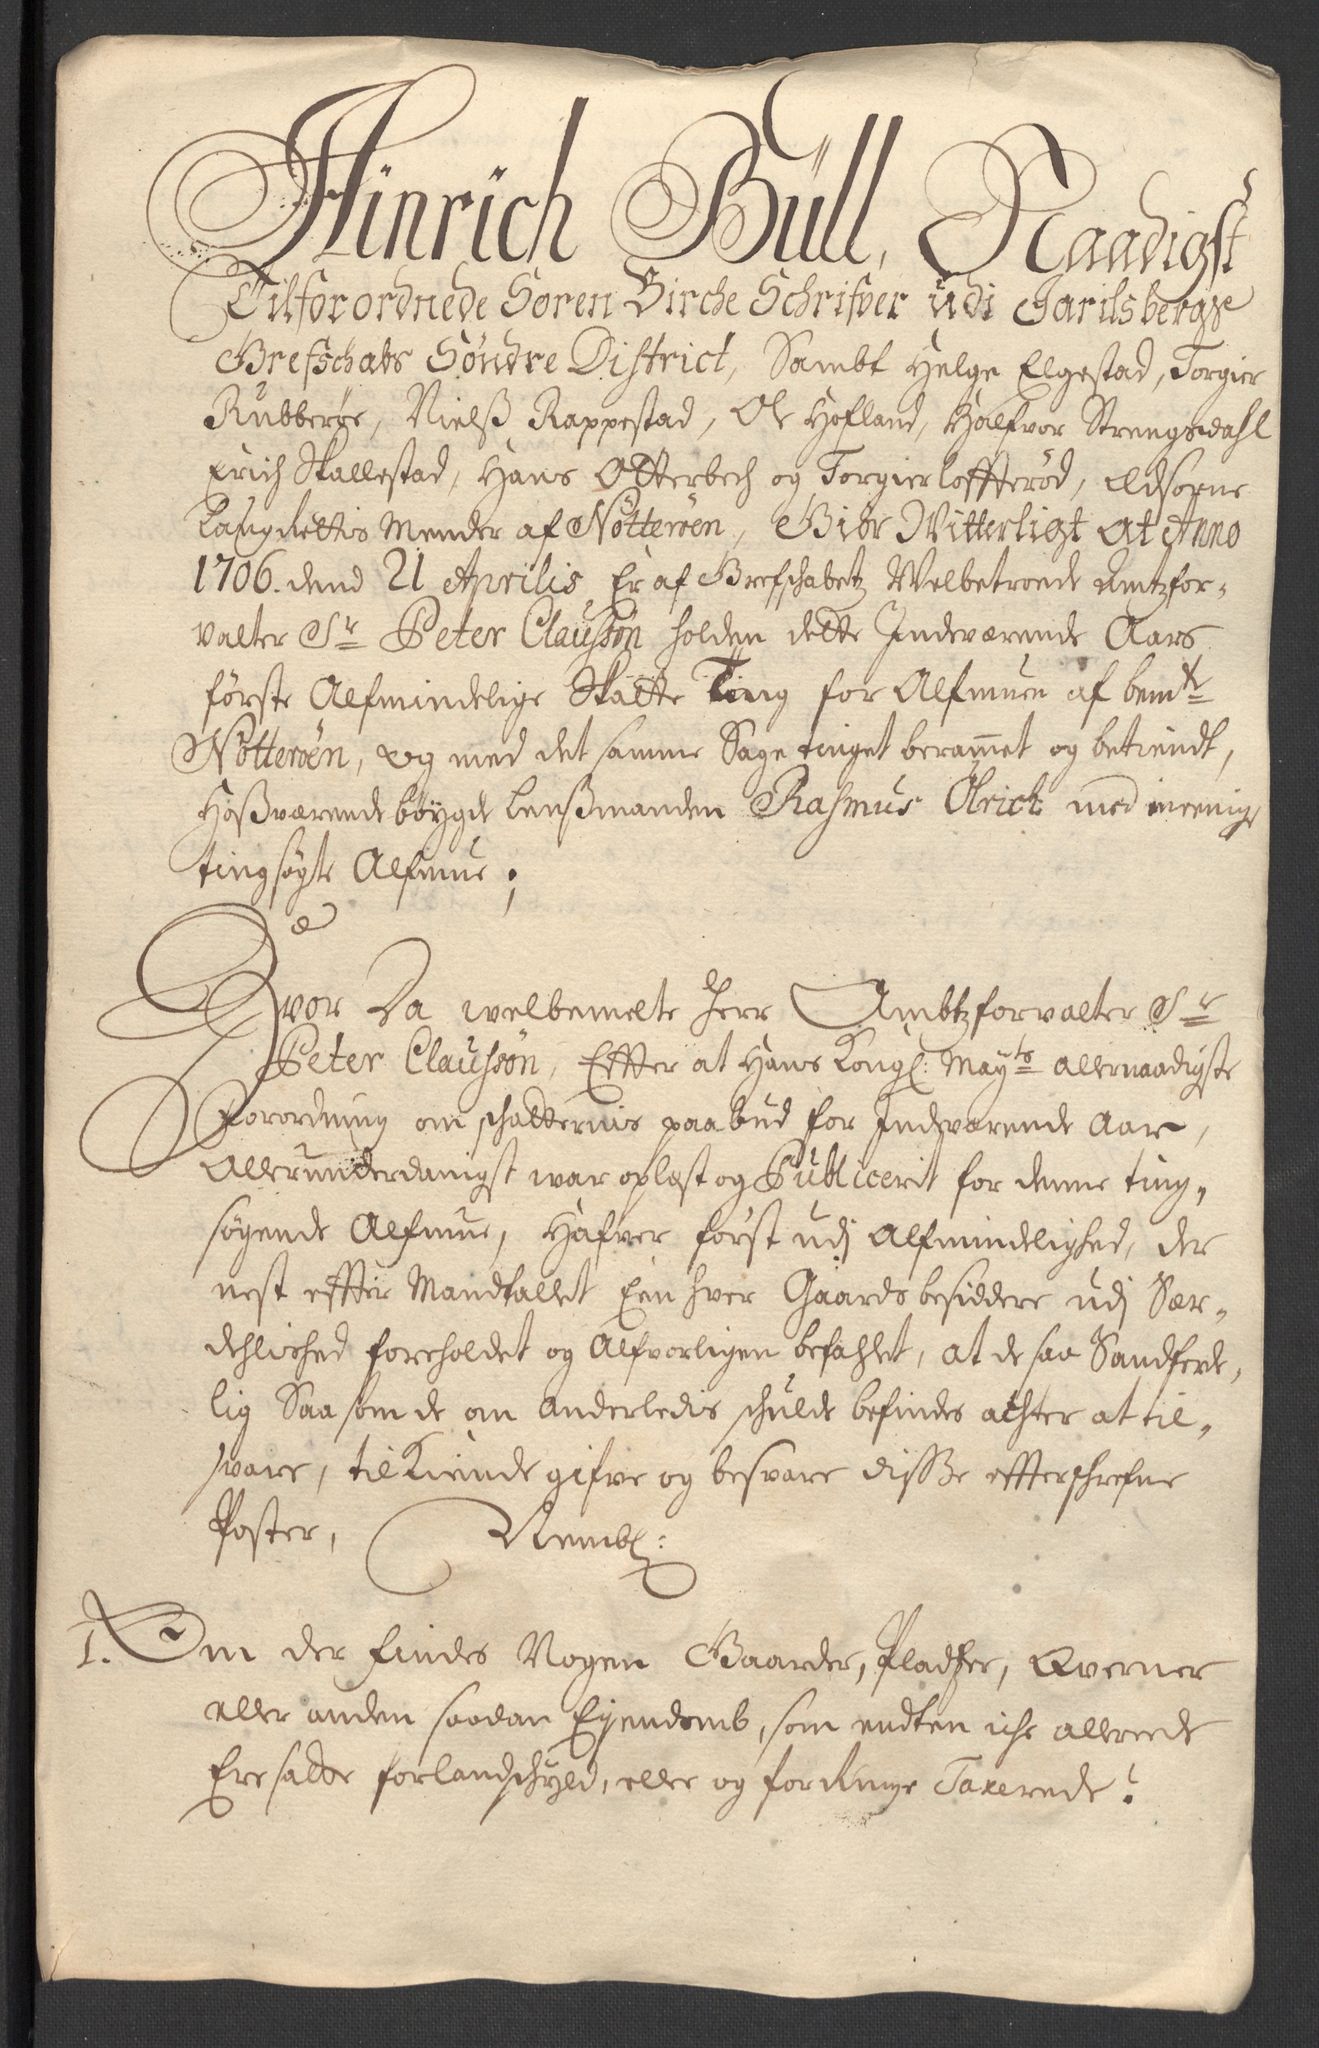 Hinrich Büll, Naadigst
Tilforordnede Soren Birche Schrifver udi Jarilsbergs
Grefschabs Søndre District, Sambt Helge Elgestad, Torgier
Rubberøe, Nielß Rappestad, Ole Hofland, Halfvor Strengsdahl
Erich Skallestad, Hans Otterbech og Torgier Loffterød, Edsorne
Laugrettis Mender af Nötteröen, Giör Witterligt at Anno
1706. dend 21 Aprilis Er af Grefschabetz Welbetroede Amtzfor-
valter Sr Peter Claussön holden dette Indeværende Aars
første Allmindelige Skatte Ting for Allmuen af bemte
Nötteröen, og med det samme Sage tinget berammet og betiendt,
Hoßværende böygde Lenßmanden Rasmus Olrich med meenige
tingsøgte Allmue;
Hvor Da welbemelte Herr Ambtzforvalter Sr
Peter Claussön, Effter at Hans Kongl: Mayts allernaadigste
Forordning om schatternis paabud for Indværende Aar,
Allerunderdanigst war oplæst og Publicerit for denne ting-
søgende Allmue, Hafver først udj Allmindelighed, der
nest effter Mandtallet Een hver Gaards besiddere udj Sær-
dehlished foreholdet og Alfvorligen befahlet, at de saa Sandferde-
lig Saa som de om anderledis schulde befindes achter at til-
svare, tilkiende gifve og besvare disse effterschrefne
Poster, Nembl:
1. Om der findes Nogen Gaarder, Pladser, Qverner
eller anden saadan Eyendomb, som endten iche allereede
Ere satte for landschyld, eller og for Ringe Taxerede?